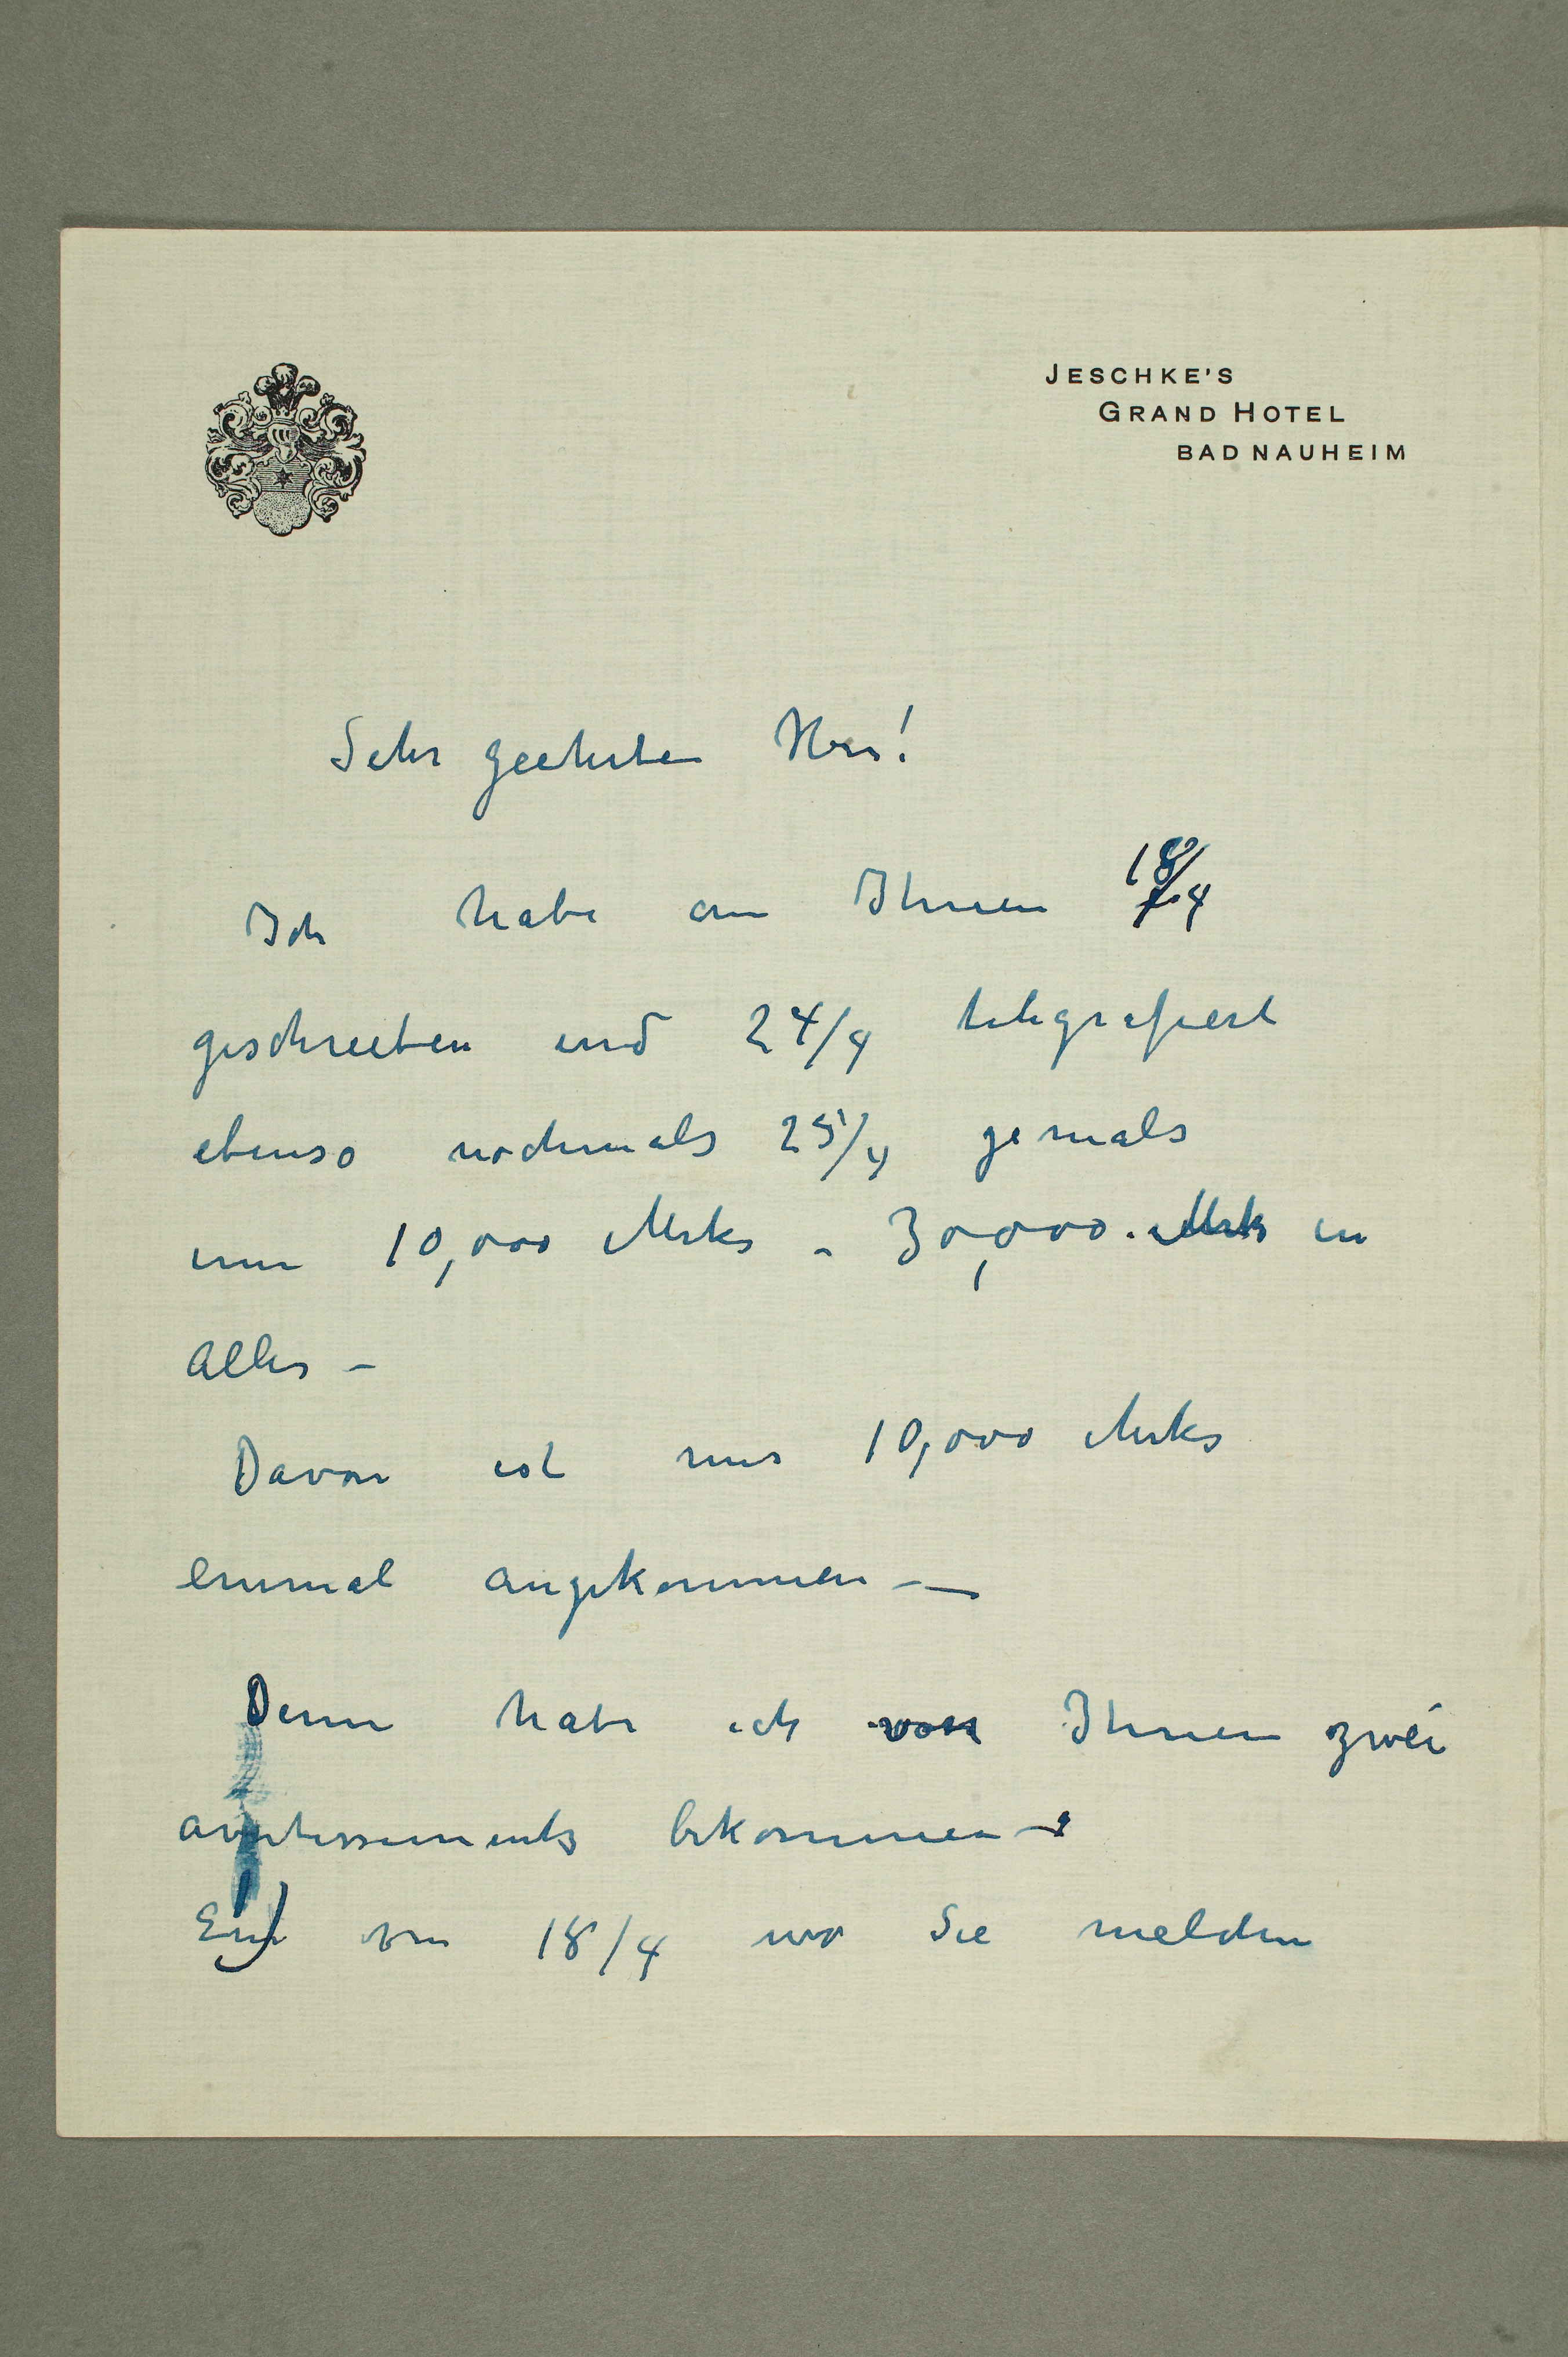 JESCHKE'S
GRAND HOTEL
BAD NAUHEIM
Sehr geehrten Herr!
Ich habe an Ihnen 18/4
geschrieben und 24/4 telegrafiert
ebenso nochmals 25/4 jemals
um 10,000 Mrks – 30,000. Mrk in
alles –
Davon ist nur 10,000 Mrks
einmal angekommen —
Denn habe ich von Ihnen zwei
avertissements bekommen –
Ein vom 18/4 wo Sie melden